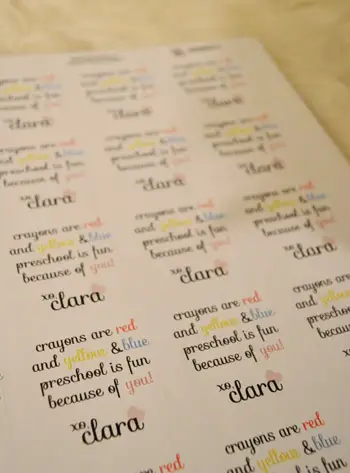 crayons are red
and yellow & blue
preschool is fun
because of you!
xo,
clara
crayons are red
and yellow & blue
preschool is fun
because of you!
xo,
clara
crayons are red
and yellow & blue
preschool is fun
because of you!
xo,
clara
crayons are red
and yellow & blue
preschool is fun
because of you!
xo,
clara
crayons are red
and yellow & blue
preschool is fun
because of you!
xo,
clara
crayons are red
and yellow & blue
preschool is fun
because of you!
xo,
clara
crayons are red
and yellow & blue
preschool is fun
because of you!
xo,
clara
crayons are red
and yellow & blue
preschool is fun
because of you!
xo,
clara
crayons are red
and yellow & blue
preschool is fun
because of you!
xo,
clara
crayons are red
and yellow & blue
preschool is fun
because of you!
xo,
clara
crayons are red
and yellow & blue
preschool is fun
because of you!
xo,
clara
crayons are
and yellow
preschoo
because
xo,
red
crayons are red
and yellow & blue
preschool is fun